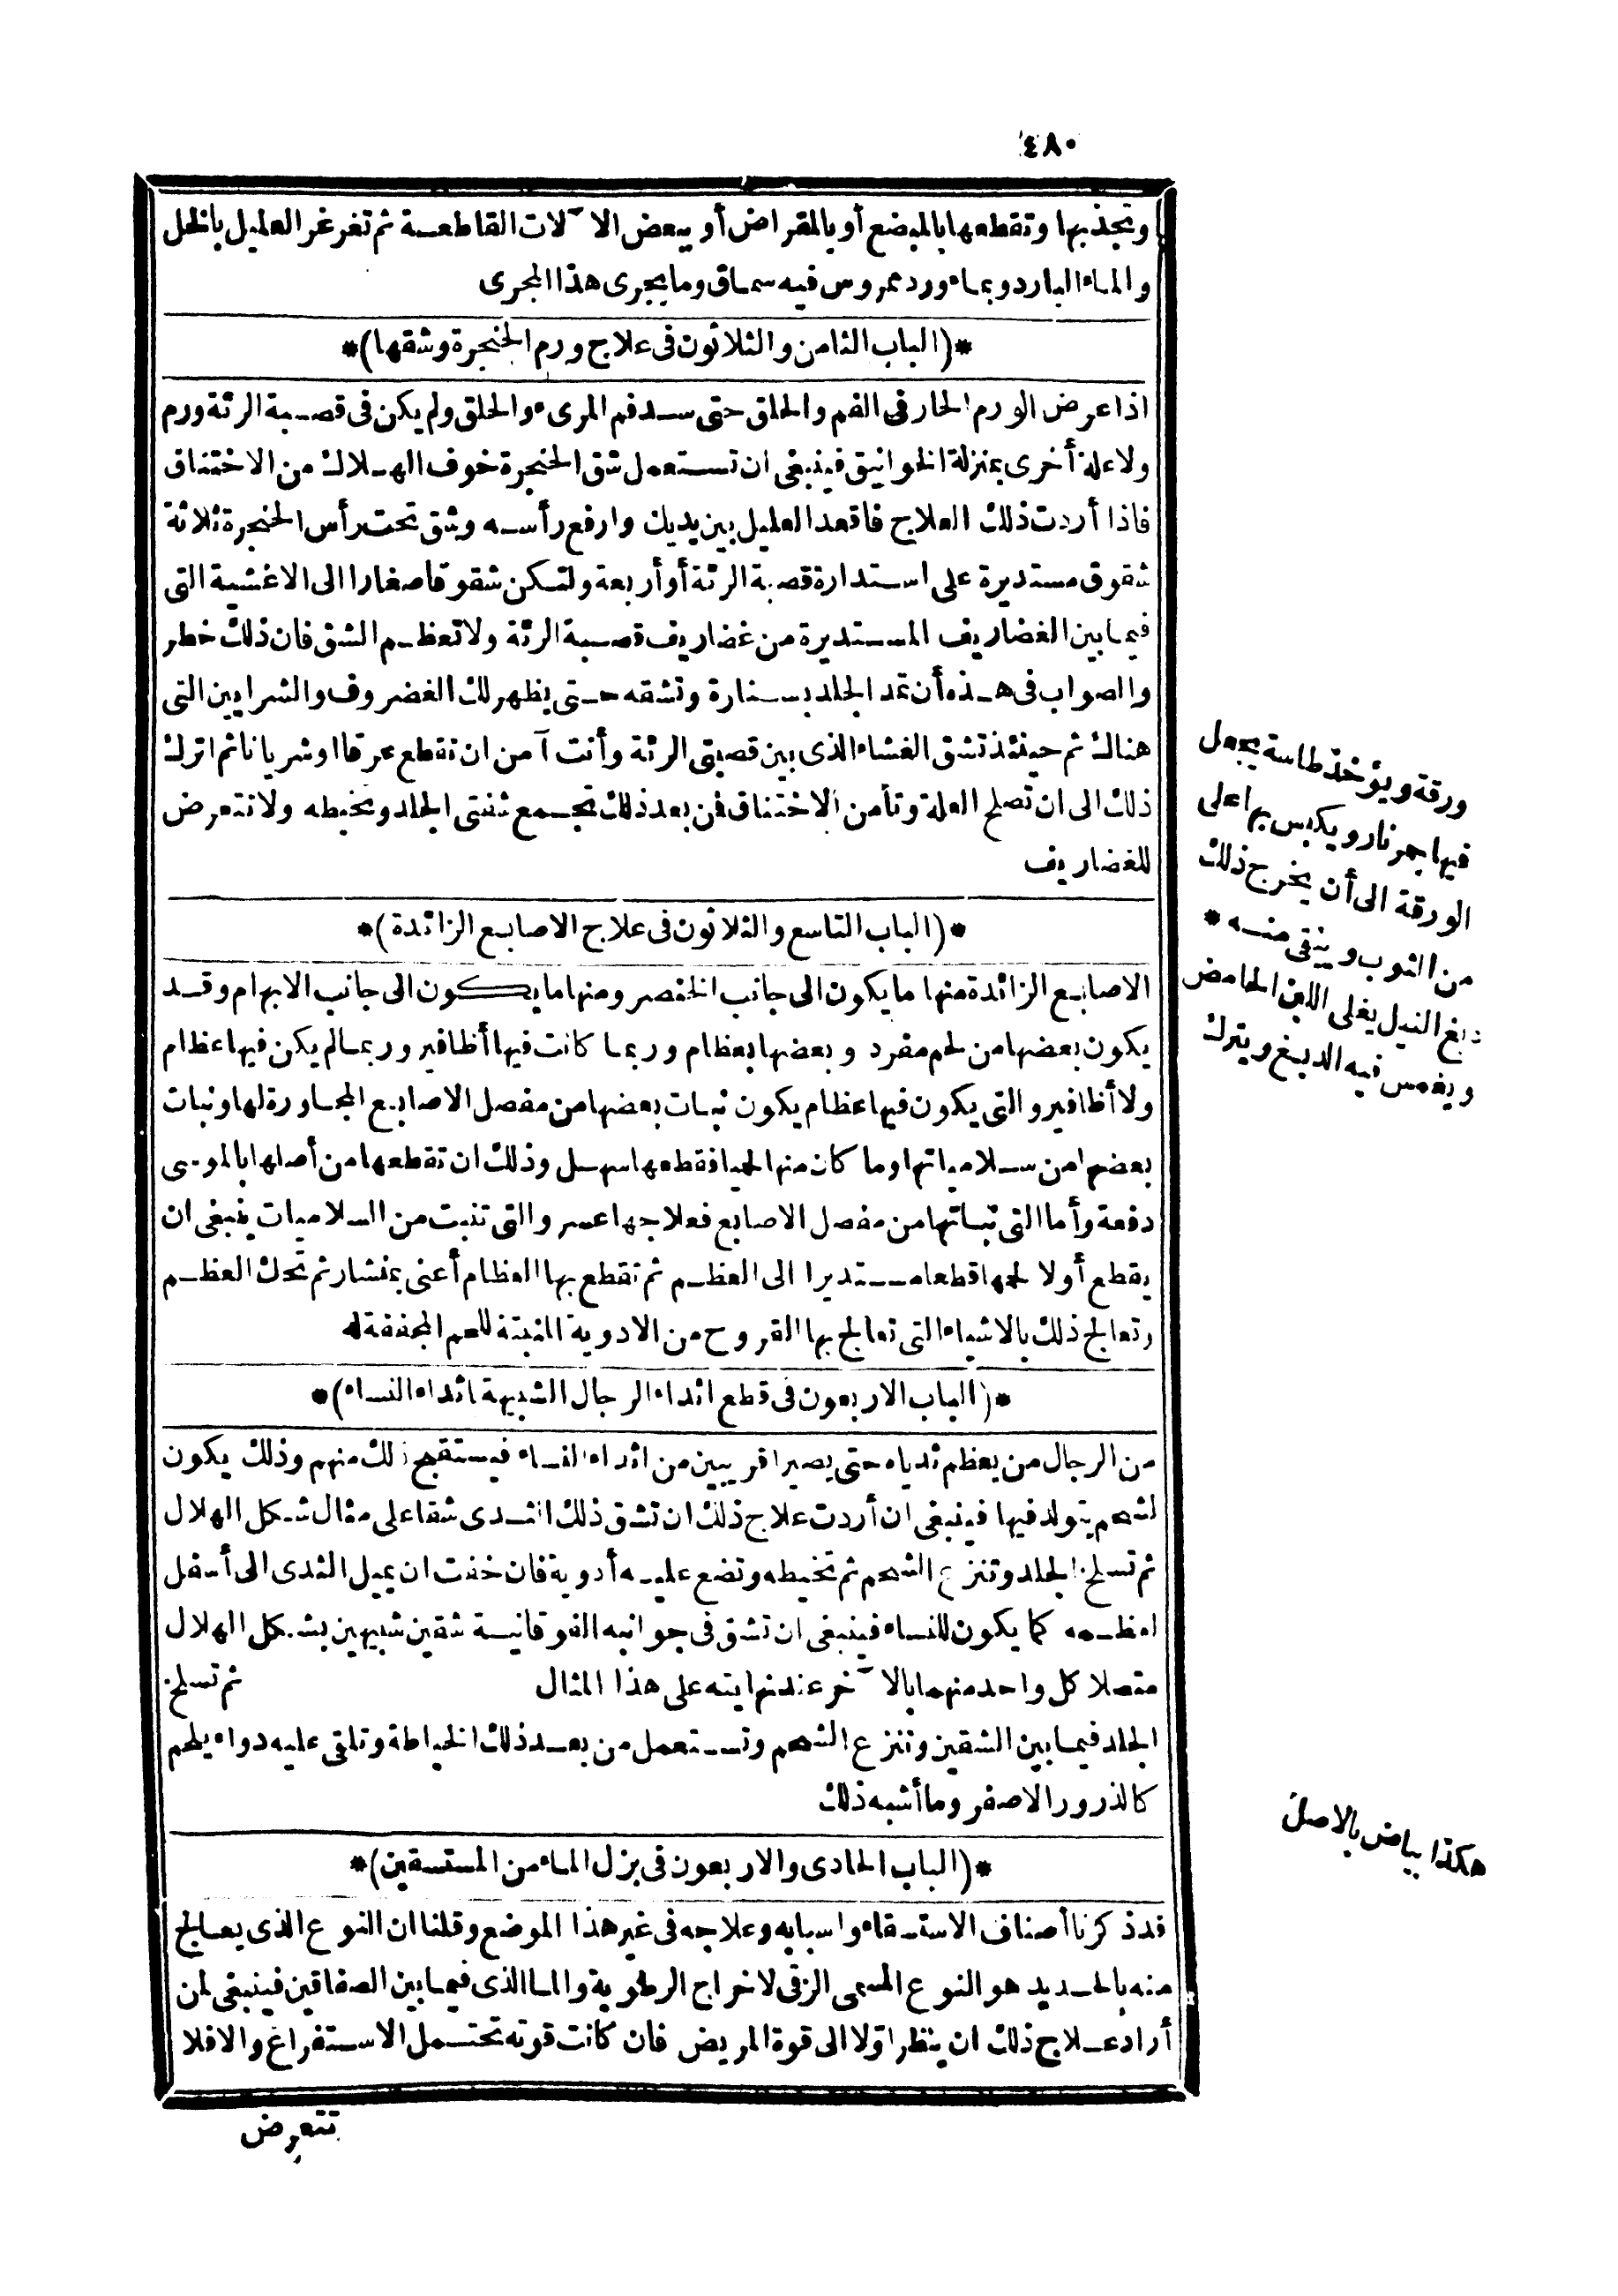 ٤٨٠
وتجذبها وتقطعها بالمبضع أو بالمقراض أو ببعض الآلات القاطعة ثم تغرغر العليل بالخل
والماء البارد وبماء ورد ممروس فيه سماق وما يجرى هذا المجرى
*(الباب الثامن والثلاثون فى علاج ورم الحنجرة وشقها)*
اذا عرض الورم الحار فى الفم والحلق حتى سد فم المرىء والحلق ولم يكن فى قصبة الرئة ورم
ولا علة أخرى بمنزلة الخوانيق فينبغى ان تستعمل شق الحنجرة خوف الهلاك من الاختناق
فاذا أردت ذلك العلاج فاقعد العليل بين يديك وارفع رأسه وشق تحت رأس الحنجرة ثلاثة
شقوق مستديرة على استدارة قصبة الرئة أو أربعة ولتكن شقوقا صغارا الى الاغشية التى
فيما بين الغضاريف المستديرة من غضاريف قصبة الرئة ولا تعظم الشق فان ذلك خطر
والصواب فى هذه أن تمد الجلد بسنارة وتشقه حتى يظهر لك الغضروف والشرايين التى
هناك ثم حينئذ تشق الغشاء الذى بين قصبتى الرئة وأنت آمن ان تقطع عرقا او شريانا ثم اترك
ذلك الى ان تصلح العلة وتأمن الاختناق فمن بعد ذلك تجمع شفتى الجلد وتخيطه ولا تتعرض
للغضاريف
*(الباب التاسع والثلاثون فى علاج الاصابع الزائدة)*
الاصابع الزائدة منها ما يكون الى جانب الخنصر ومنها ما يكون الى جانب الابهام وقد
يكون بعضها من لحم مفرد وبعضها بعظام وربما كانت فيها أظافير وربما لم يكن فيها عظام
ولا أظافير والتى يكون فيها عظام يكون نبات بعضها من مفصل الاصابع المجاورة لها ونبات
بعضها من سلامياتها وما كان منها لحميا فقطعها سهل وذلك ان تقطعها من أصلها بالموسى
دفعة وأما التى نباتها من مفصل الاصابع فعلاجها عسر والتى تنبت من السلاميات ينبغى ان
يقطع أولا لحمها قطعا مستديرا الى العظم ثم تقطع بها العظام أعنى بمنشار ثم تحك العظم
وتعالج ذلك بالاشياء التى تعالج بها القروح من الادوية المنبتة للحم المجففة له
*(الباب الاربعون فى قطع اثداء الرجال الشبيهة باثداء النساء)*
من الرجال من يعظم ثدياه حتى يصيرا قريبين من اثداء النساء فيستقبح ذلك منهم وذلك يكون
لشحم يتولد فيها فينبغى ان أردت علاج ذلك ان تشق ذلك الثدى شقا على مثال شكل الهلال
ثم تسلخ الجلد وتنزع الشحم ثم تخيطه وتضع عليه أدوية فان خفت ان يميل الثدى الى أسفل
لعظمه كما يكون للنساء فينبغى ان تشق فى جوانبه الفوقانية شقين شبيهين بشكل الهلال
متصلا كل واحد منهما بالآخر عند نهايته على هذا المثال ثم تسلخ
الجلد فيما بين الشقين وتنزع الشحم وتستعمل من بعد ذلك الخياطة وتلقى عليه دواء يلحم
كالذرور الاصفر وما أشبه ذلك
*(الباب الحادى والاربعون فى بزل الماء من المستسقين)*
قد ذكرنا أصناف الاستسقاء واسبابه وعلاجه فى غير هذا الموضع وقلنا ان النوع الذى يعالج
منه بالحديد هو النوع المسمى الزقى لاخراج الرطوبة والماء الذى فيما بين الصفاقين فينبغى لمن
أراد علاج ذلك ان ينظر اولا الى قوة المريض فان كانت قوته تحتمل الاستفراغ والا فلا
تتعرض
ورقة ويؤخذ طاسة يجعل
فيها جمر نار ويكبس بها على
الورقة الى أن يخرج ذلك
من الثوب وينقى منه *
دبغ النيل يغلى اللبن الحامض
ويغمس فيه الدبغ ويترك
هكذا بياض بالاصل